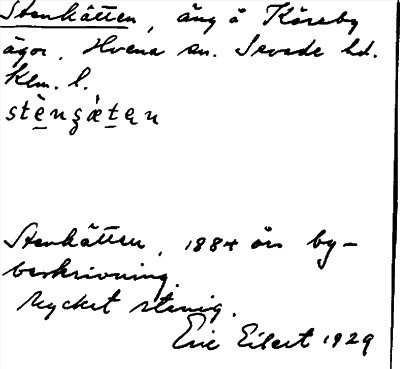 Stenkätten, äng å Kåreby
ägor, Hvena sn. Sevede hd.
Klm. l.
stènʒǽtęn
Stenkätten, 1884 års by-
beskrivning.
Mycket stenig.
Eric Eilert 1929